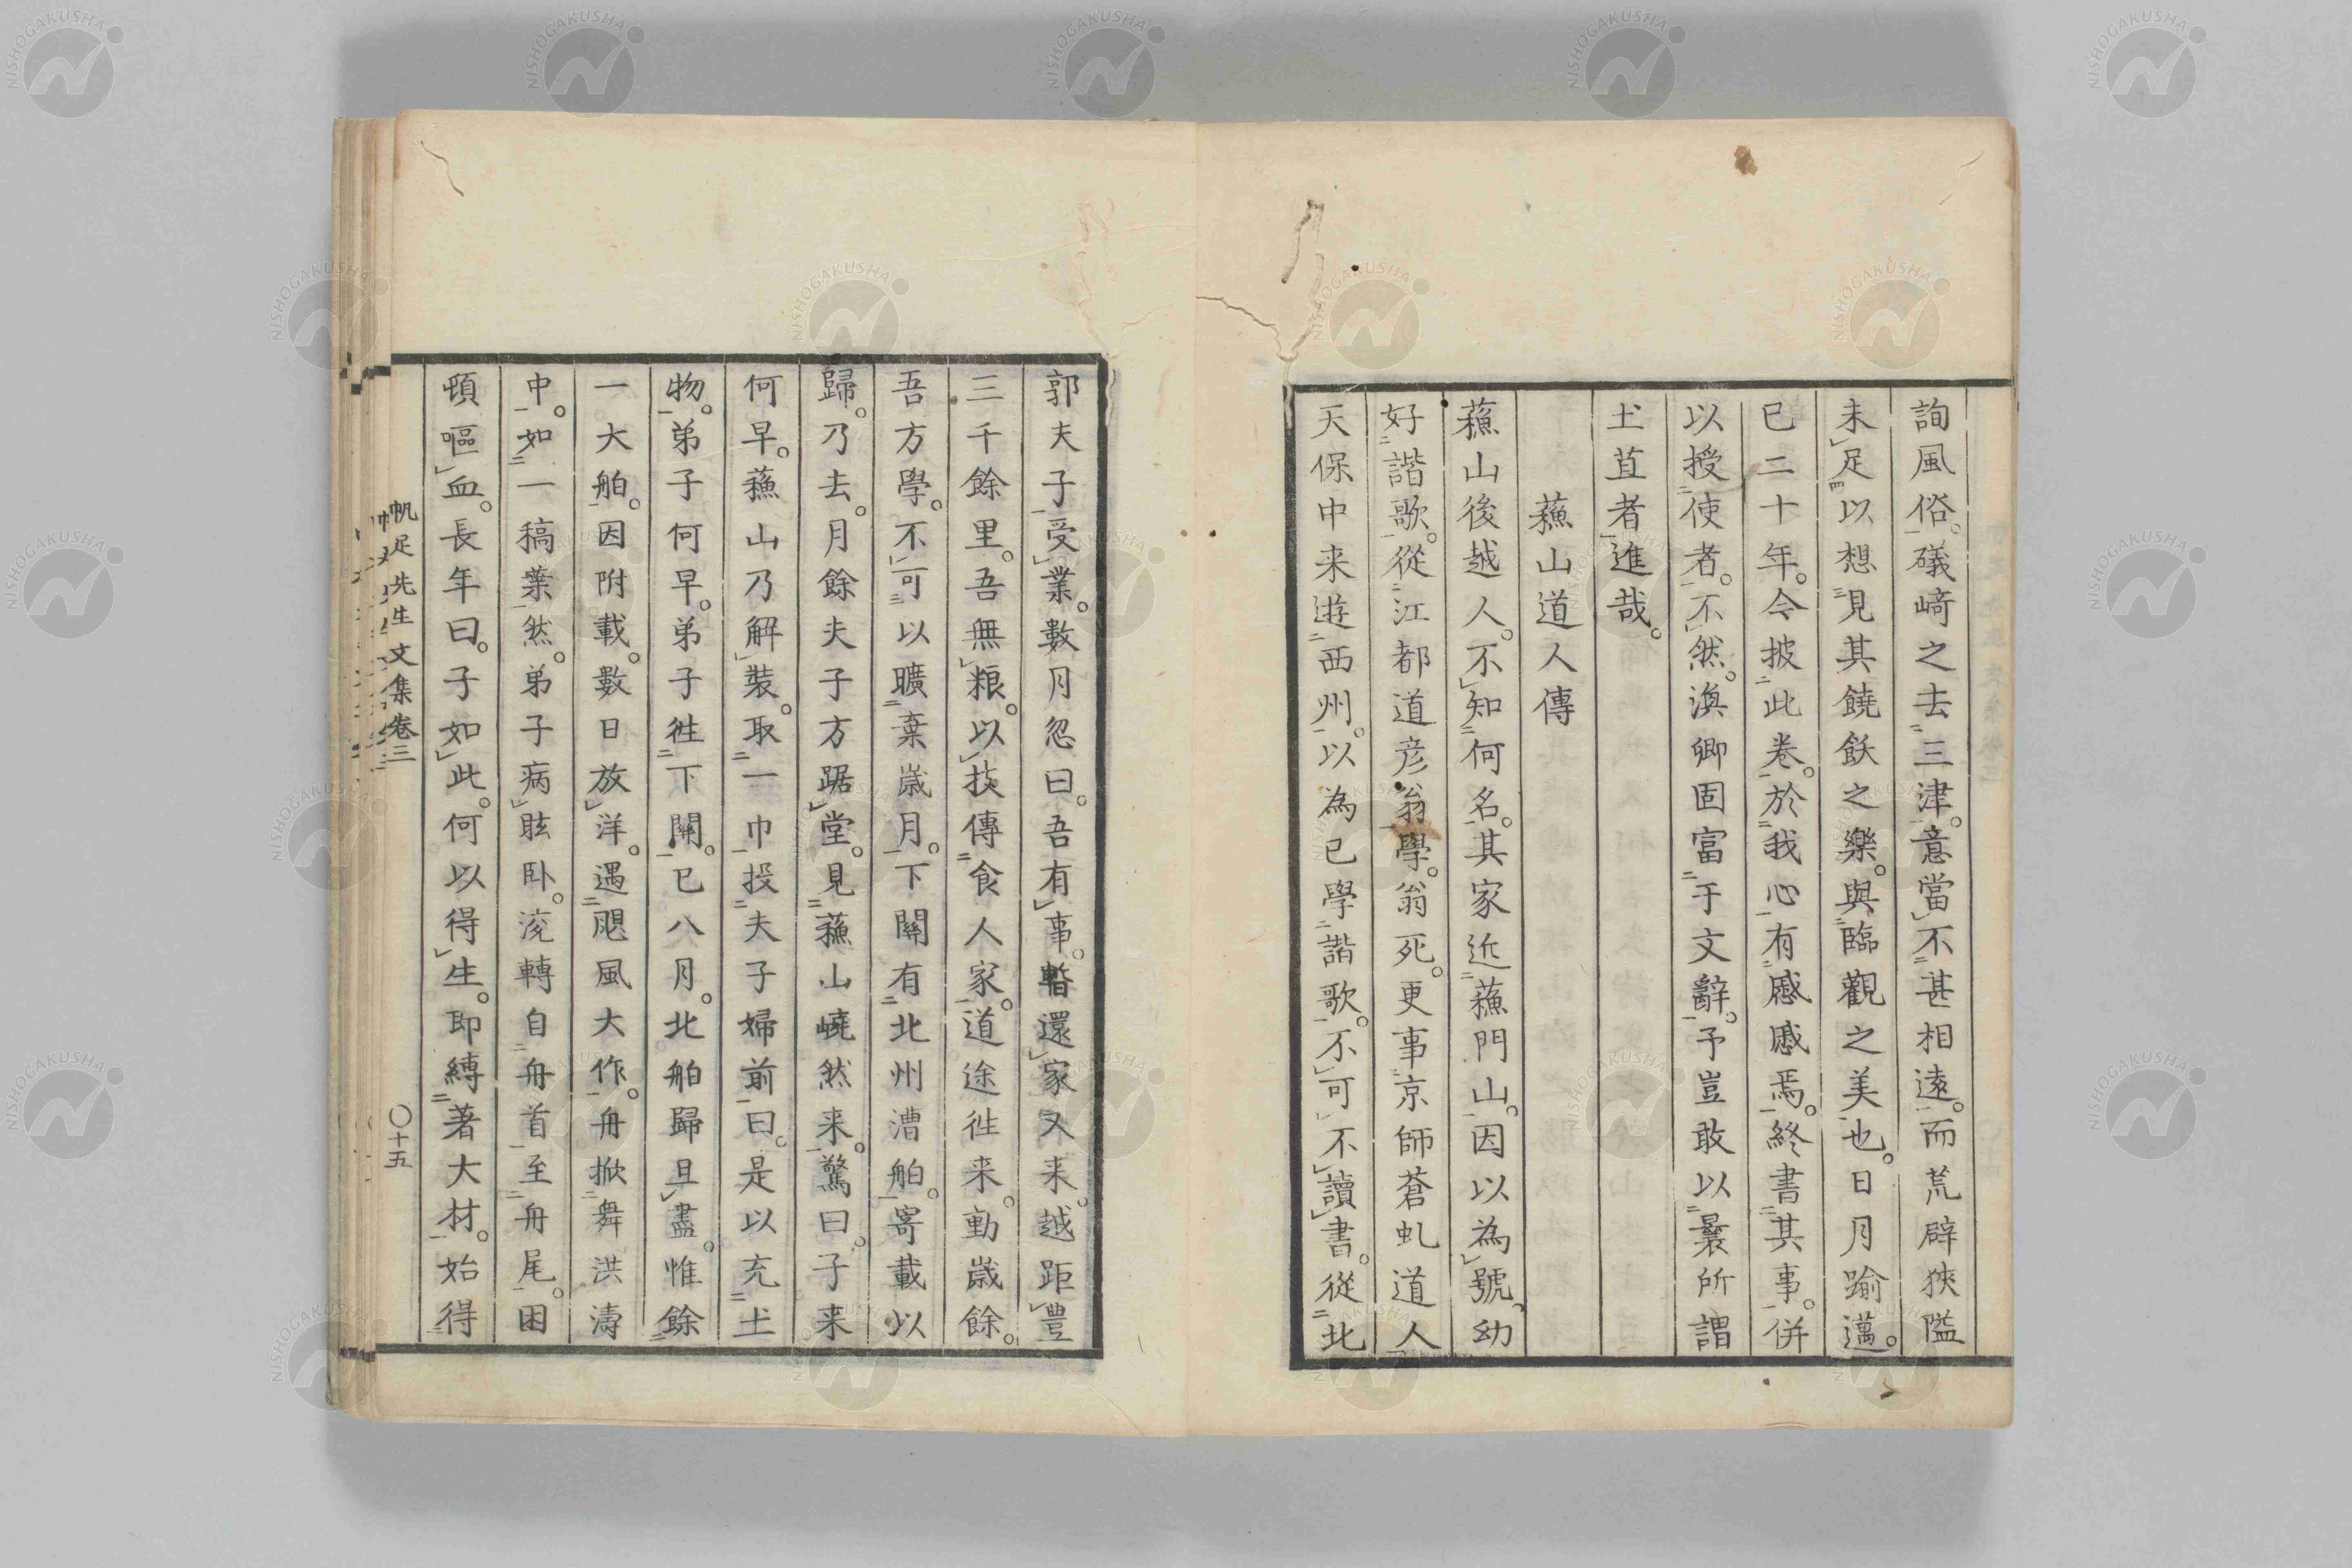 詢風俗。礒﨑之去三津。意當不甚相遠。而荒辟狹隘
未足以想見其饒飫之樂。與臨觀之美也。日月踰邁。
已二十年。今披此卷。於我心有慼慼焉。終書其事。併
以授使者。不然。渙卿固富于文辭。予豈敢以曩所謂
土苴者進哉。
蘓山道人傳
蘓山後越人。不知何名。其家近蘓門山。因以為號。幼
好諧歌。從江都道彦翁學。翁死。更事京師蒼虬道人
天保中来遊西州。以為已學諧歌。不可不讀書。從北
郭夫子受業。數月忽曰。吾有事。暫還家又来。越距豐
三千餘里。吾無粮。以技傳食人家。道途徃来。動嵗餘。
吾方學。不可以曠棄嵗月。下關有北州漕舶。寄載以
歸。乃去。月餘夫子方踞堂。見蘓山嶢然来。驚曰。子来
何早。蘓山乃解裝。取一巾投夫子婦前曰。是以充土
物。弟子何早。弟子徃下關。已八月。北舶歸且盡。惟餘
一大舶。因附載。數日放洋。遇颶風大作。舟掀舞洪濤
中。如一稿葉然。弟子病眩卧。流轉自舟首至舟尾。困
頓嘔血。長年曰。子如此。何以得生。即縛著大材。始得
帆足先生文集卷三
〇十五
NISHOGAKUSHA